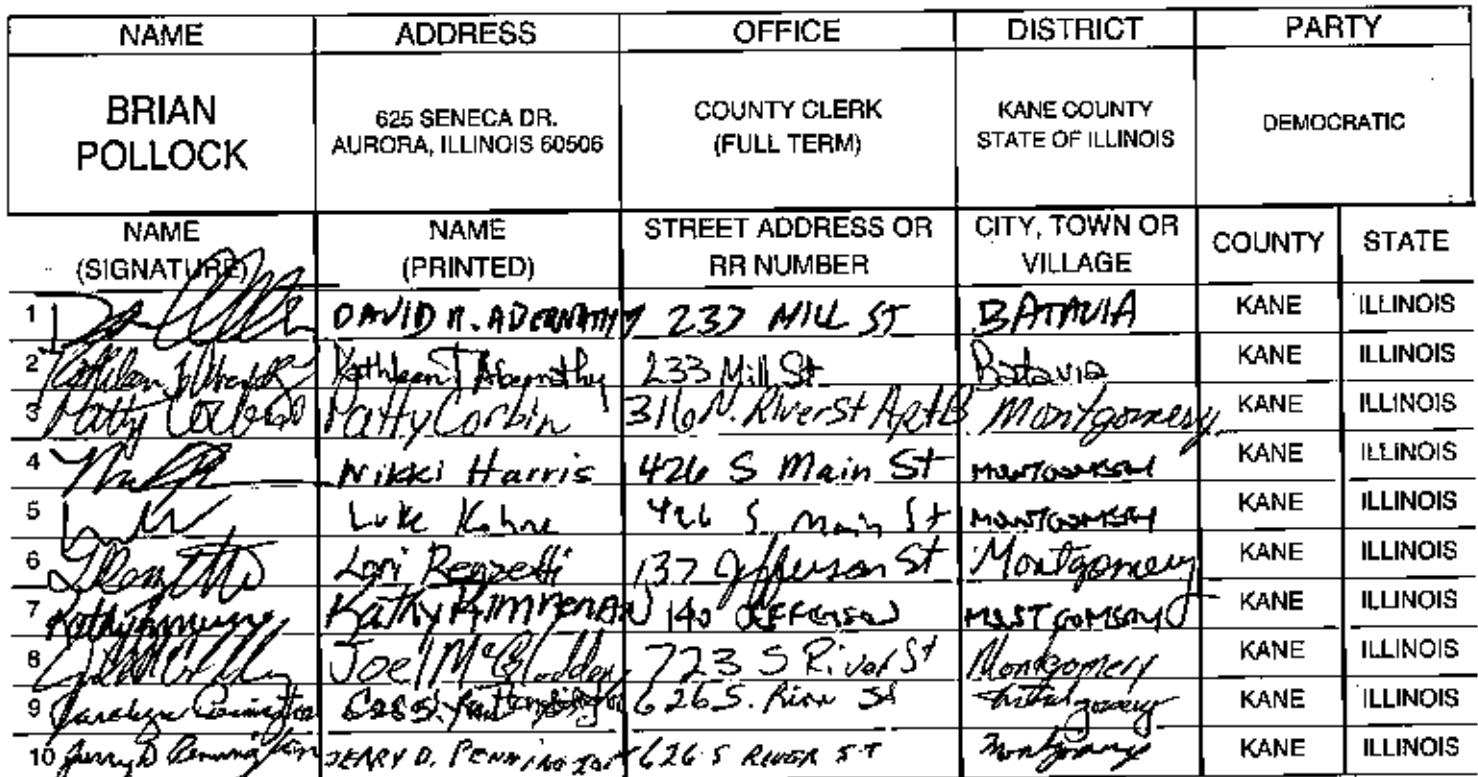 NAME ADDRESS OFFICE DISTRICT PARTY
BRIAN POLLOCK 625 SENECA DR. AURORA, ILLINOIS 60506 COUNTY CLERK (FULL TERM) KANE COUNTY STATE OF ILLINOIS DEMOCRATIC
NAME (SIGNATURE) NAME (PRINTED) STREET ADDRESS OR RR NUMBER CITY, TOWN OR VILLAGE COUNTY STATE
1 DAVID 237 MILL ST BATAVIA KANE ILLINOIS
2 Kathleen T Abernathy 233 Mill St Batavia KANE ILLINOIS
3 Patty Corbin Patty Corbin 316 N. River St Apt B Montgomery KANE ILLINOIS
4 Nikki Harris 426 S Main St MONTGOMERY KANE ILLINOIS
5 Luke 426 S Main St MONTGOMERY KANE ILLINOIS
6 Lori 137 Jefferson St Montgomery KANE ILLINOIS
7 Kathy 140 JEFFERSON MONTGOMERY KANE ILLINOIS
8 Joel 723 S River St Montgomery KANE ILLINOIS
9 626 S. River St Montgomery KANE ILLINOIS
10 Jerry D Pennington JERRY D. PENNINGTON 626 S RIVER ST Montgomery KANE ILLINOIS